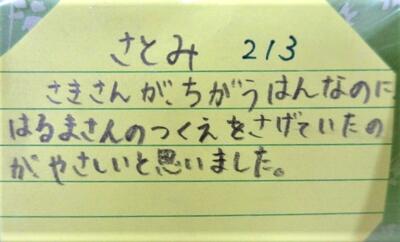 さとみ 213
さきさんが、ちがうはんなのに
はるまさんのつくえをさげていたの
がやさしいと思いました。